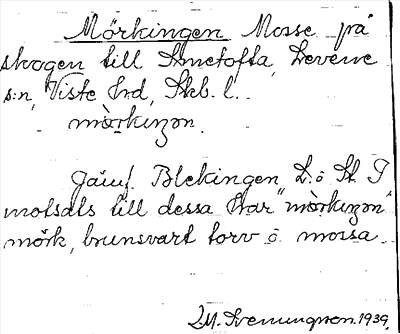 Mörkingen Mosse på
skogen till Smetofta, Levene
s:n, Viste Hrd, Skb. l.
mòrkinȝon.
Jämf. Blekingen L. ö St. I
motsats till dessa har "mòrkinȝon"
mörk, brunsvart torv o. mossa.
M. Svenungson. 1939.